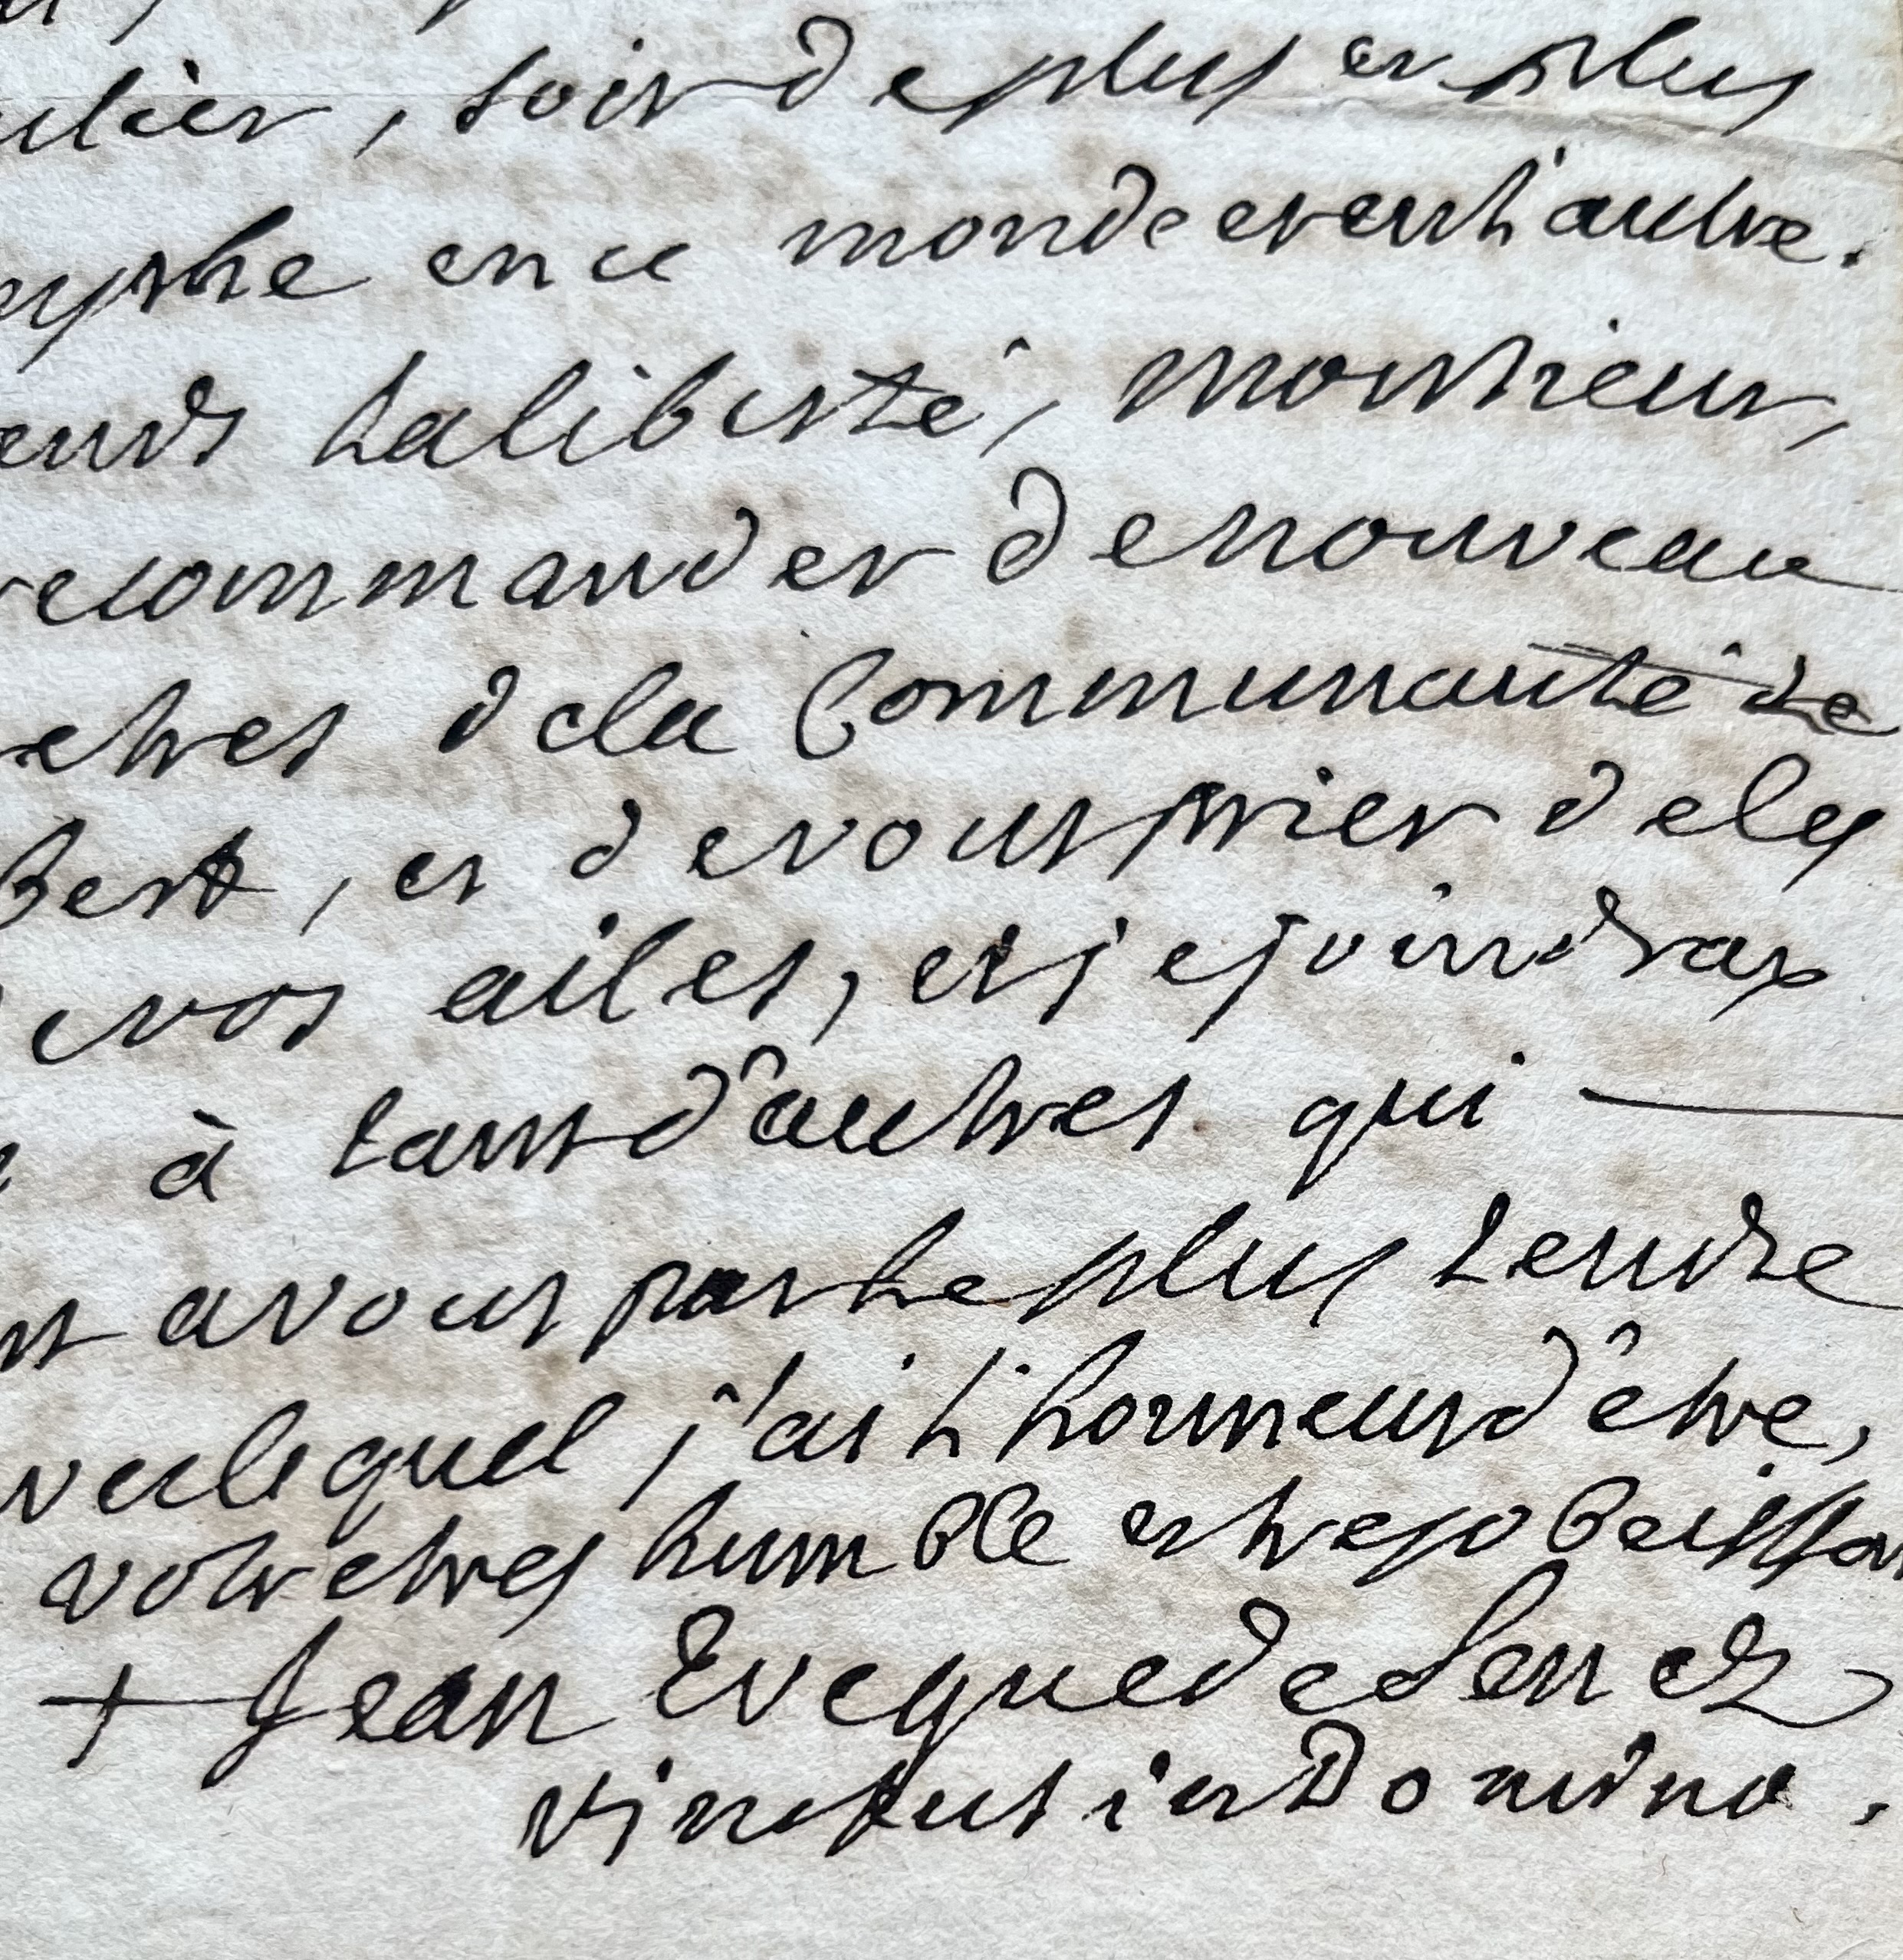 ulier, soit de plus en plus
en ce monde et en l'autre.
la liberté, monsieur,
recommander de nouveau
de la Communauté de
bert, et de vous prier de les
vos ailes, et je joindray
à tant d'autres qui
a vous par le plus tendre
lequel j'ai l'honneur d'être,
votre tres humble et tres obeissan
+ Jean Eveque de Senez
vinctus in Domino.